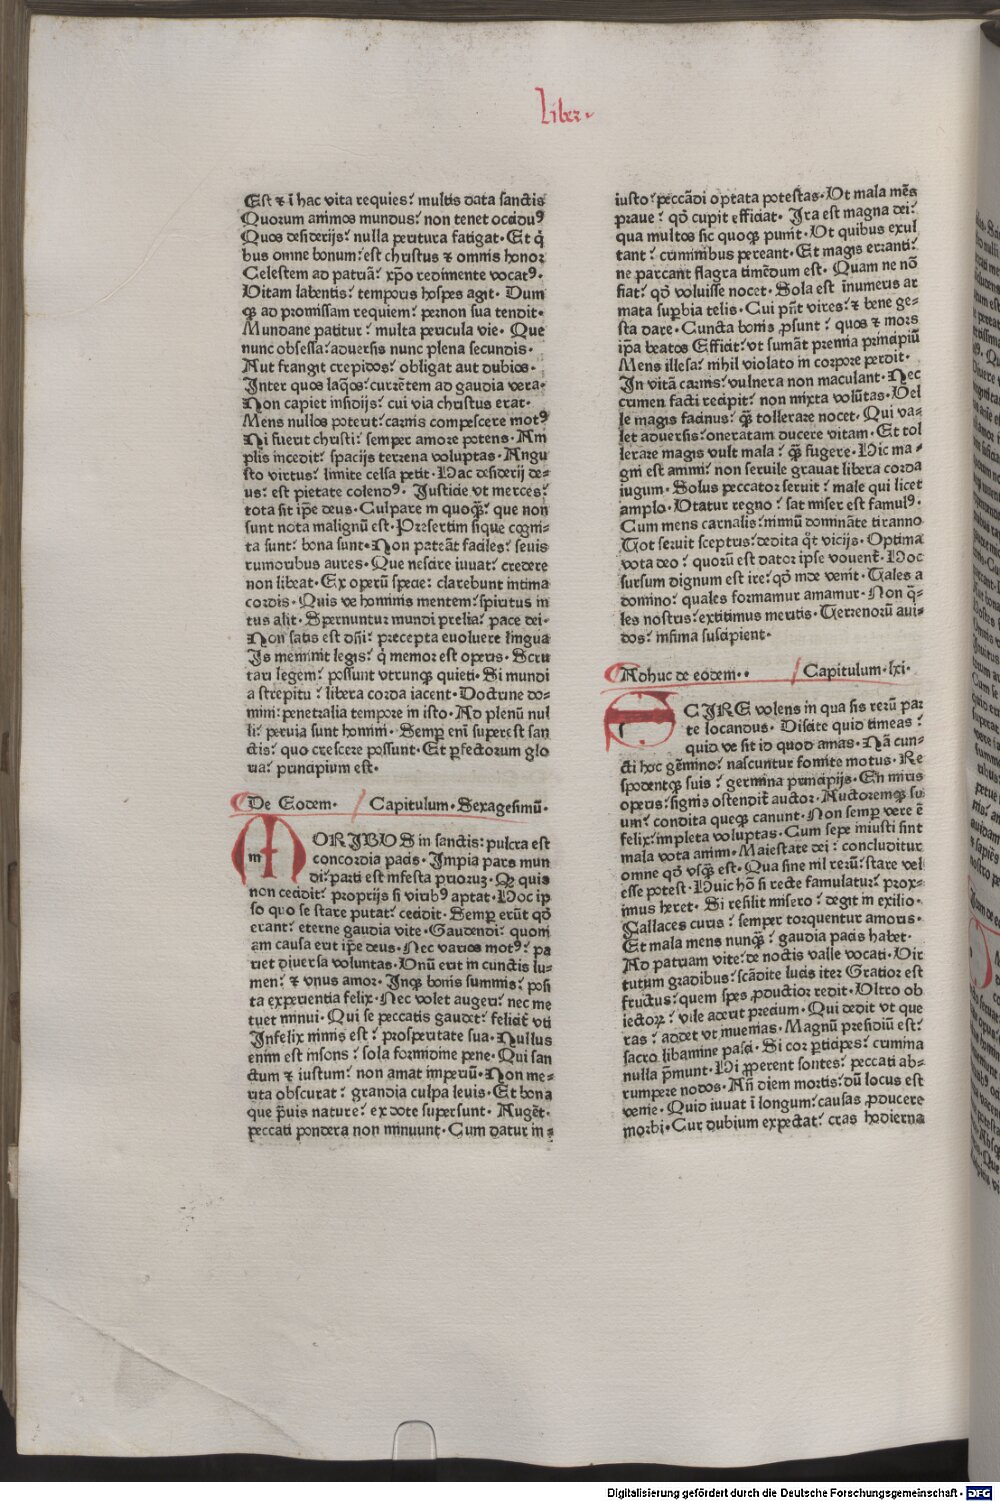 Liber.
Est ⁊ ī hac vita requies: multis data sanctis
Quorum animos mundus: non tenet occiduꝰ
Quos desiderijs: nulla peritura fatigat. Et q̄
bus omne bonum: est christus ⁊ omnis honor
Celestem ad patriā: xp̄o redimente vocatꝰ.
Vitam labentis: temporis hospes agit. Dum
qꝫ ad promissam requiem: pernon sua tendit.
Mundane patitur: multa pericula vie. Que
nunc obsessa: aduersis nunc plena secundis.
Aut frangit trepidos: obligat aut dubios.
Inter quos laq̄os: currētem ad gaudia vera.
Non capiet insidijs: cui via christus erat.
Mens nullos poterit: carnis compescere motꝰ
Ni fuerit christi: semper amore potens. Am
plis incedit: spacijs terrena voluptas. Angu
sto virtus: limite celsa petit. Hac desiderij de⸗
us: est pietate colendꝰ. Justicie vt merces:
tota sit ip̄e deus. Culpare in quoqꝫ: que non
sunt nota malignū est. Presertim sique cogni⸗
ta sunt: bona sunt. Non pateāt faciles: seuis
rumoribus aures. Que nescire iuuat: credere
non libeat. Ex operū specie: clarebunt intima
cordis. Quis ve hominis mentem: spiritus in
tus alit. Spernuntur mundi prelia: pace dei.
Non satis est dn̄i: precepta euoluere lingua
Is meminit legis: q̄ memor est operis. Scru
tari legem: possunt vtrunqꝫ quieti. Si mundi
a strepitu: libera corda iacent. Doctrine do⸗
mini: penetralia tempore in isto. Ad plenū nul
li: peruia sunt homini. Semꝑ eni superest san
ctis: quo crescere possunt. Et ꝑfectorum glo
ria: principium est.
De Eodem. Capitulum. Sexagesimū.
m ORIBUS in sanctis: pulcra est
concordia pacis. Impia pars mun
di: parti est infesta priorum. Qꝫ quis
non cecidit: proprijs si viribꝰ aptat. Hoc ip
so quo se stare putat: cecidit. Semꝑ erūt qd̄
erant: eterne gaudia vite. Gaudendi: quoni
am causa erit ip̄e deus. Nec varios motꝰ: pa
riet diuersa voluntas. Vnū erit in cunctis lu⸗
men: ⁊ vnus amor. Inqꝫ bonis summis: posi
ta experientia felix. Nec volet augeri: nec me
tuet minui. Qui se peccatis gaudet: felicit̄ vti
Infelix nimis est: prosperitate sua. Nullus
enim est insons: sola formidine pene. Qui san
ctum ⁊ iustum: non amat imperiū. Non me⸗
rita obscurat: grandia culpa leuis. Et bona
que p̄uis nature: ex dote supersunt. Augēt.
peccati pondera non minuunt. Cum datur in⸗
iusto: peccādi optata potestas. Vt mala mēs
praue: qd̄ cupit efficiat. Ira est magna dei:
qua multos sic quoqꝫ punit. Vt quibus exul
tant: criminibus pereant. Et magis erranti:
ne parcant flagra timēdum est. Quam ne nō
fiat: qd̄ voluisse nocet. Sola est īnumeris ar
mata suꝑbia telis. Cui pn̄t vires: ⁊ bene ge⸗
sta dare. Cuncta bonis ꝓsunt: quos ⁊ mors
ip̄a beatos Efficiat: vt sumāt premia principiū
Mens illesa: nihil violato in corpore perdit.
In vitā carnis: vulnera non maculant. Nec
crimen facti recipit: non mixta volūtas. Vel
le magis facinus: qꝫ tollerare nocet. Qui va⸗
let aduersis: oneratam ducere vitam. Et tol
lerare magis vult mala: qꝫ fugere. Hic ma⸗
gni est animi: non seruile grauat libera corda
iugum. Solus peccator seruit: male qui licet
amplo. Vtatur regno: sat miser est famulꝰ.
Cum mens carnalis: nimiū domināte tiranno
Tot seruit sceptris: dedita q̄t vicijs. Optima
vota deo: quorū est dator ipse vouent̄. Hoc
sursum dignum est ire: qd̄ inde venit. Tales a
domino: quales formamur amamur. Non q̄⸗
les nostris: extitimus meritis. Terrenorū aui⸗
dos: infima suscipient.
Adhuc de eodem.. Capitulum. lxi.
CIRE volens in qua sis rerū par
te locandus. Discite quid timeas:
quid ve sit id quod amas. Nā cun⸗
cti hoc gēmino: nascuntur fomite motus. Re
spodentqꝫ suis: germina principijs. En miris
operis: signis ostendit̄ auctor. Auctoremqꝫ su
um: condita queqꝫ canunt. Non semꝑ vere ē
felix: impleta voluptas. Cum sepe iniusti sint
mala vota animi. Maiestate dei: concluditur
omne qd̄ vsqꝫ est. Qua sine nil rerū: stare vel
esse potest. Huic hō si recte famulatur: prox⸗
imus heret. Si resilit misero: degit in exilio.
Fallaces curis: semper torquentur amoris.
Et mala mens nunqꝫ: gaudia pacis habet.
Ad patriam vite: de noctis valle vocati. Vir
tutum gradibus: scādite lucis iter Gratior est
fructus: quem spes ꝓductior redit. Vltro ob
iectoꝝ: vile acerit precium. Qui dedit vt que
ras: addet vt inuenias. Magnū presidiū est:
sacro libamine pasci. Si cor ꝑticipes: crimina
nulla p̄munt. Hi ꝓperent sontes: peccati ab⸗
rumpere nodos. An̄ diem mortis: dū locus est
venie. Quid iuuat ī longum: causas ꝓducere
morbi. Cur dubium expectat: cras hodierna